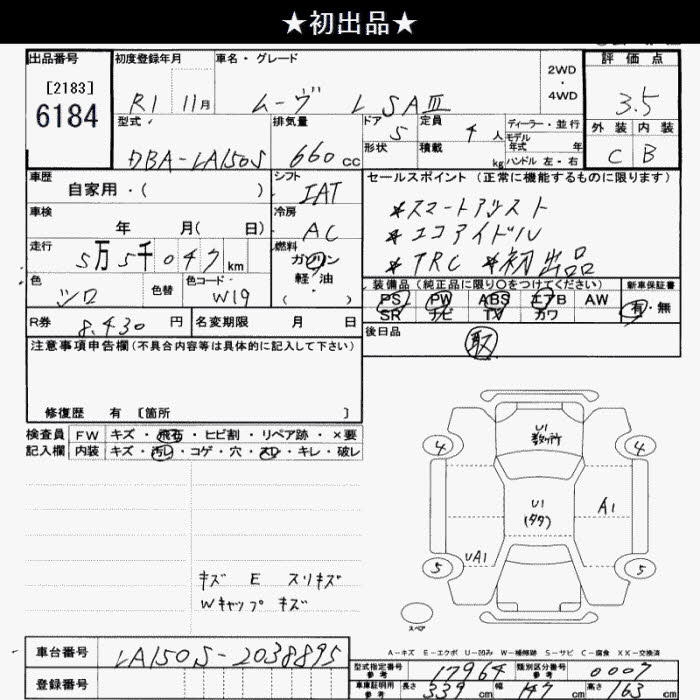 ★初出品★
出品番号 初度登録年月 車名・グレード 2WD・4WD 評価点
[2183]
6184
R1 11月 ムーヴ L SAⅢ 3.5
型式 排気量 ドア 定員 ディーラー・並行 外装 内装
DBA-LA150S 660cc 5 4人 モデル年式 年 C B
形状 積載 kg ハンドル 左・右
車歴 シフト セールスポイント(正常に機能するものに限ります)
自家用・( ) IAT
車検 冷房 *スマートアシスト
年 月( 日) AC *エコアイドル
走行 燃料 *TRC *初出品
5万5千047km ガソリン
軽・油
( )
色 色替 色コード
シロ W19
装備品(純正品に限り○をつけてください) 新車保証書
PS PW ABS エアB AW 有・無
SR ナビ TV カワ
R券 8,430円 名変期限 月 日 後日品
取
注意事項申告欄(不具合内容等は具体的に記入して下さい)
修復歴 有 [箇所 ]
検査員 FW キズ・飛石・ヒビ割・リペア跡・×要
記入欄 内装 キズ・汚レ・コゲ・穴・スレ・キレ・破レ
U1
数ヶ所
4 4
U1
(タタ)
A1
UA1
5 5
キズ E スリキズ
Wキャップ キズ
スペア
A-キズ E-エクボ U-凹み W-補修跡 S-サビ C-腐食 XX-交換済
車台番号 LA150S-2038895
型式指定番号 参考 17964 類別区分番号 参考 0007
登録番号
車庫証明用 参考 長さ 339cm 幅 147cm 高さ 163cm